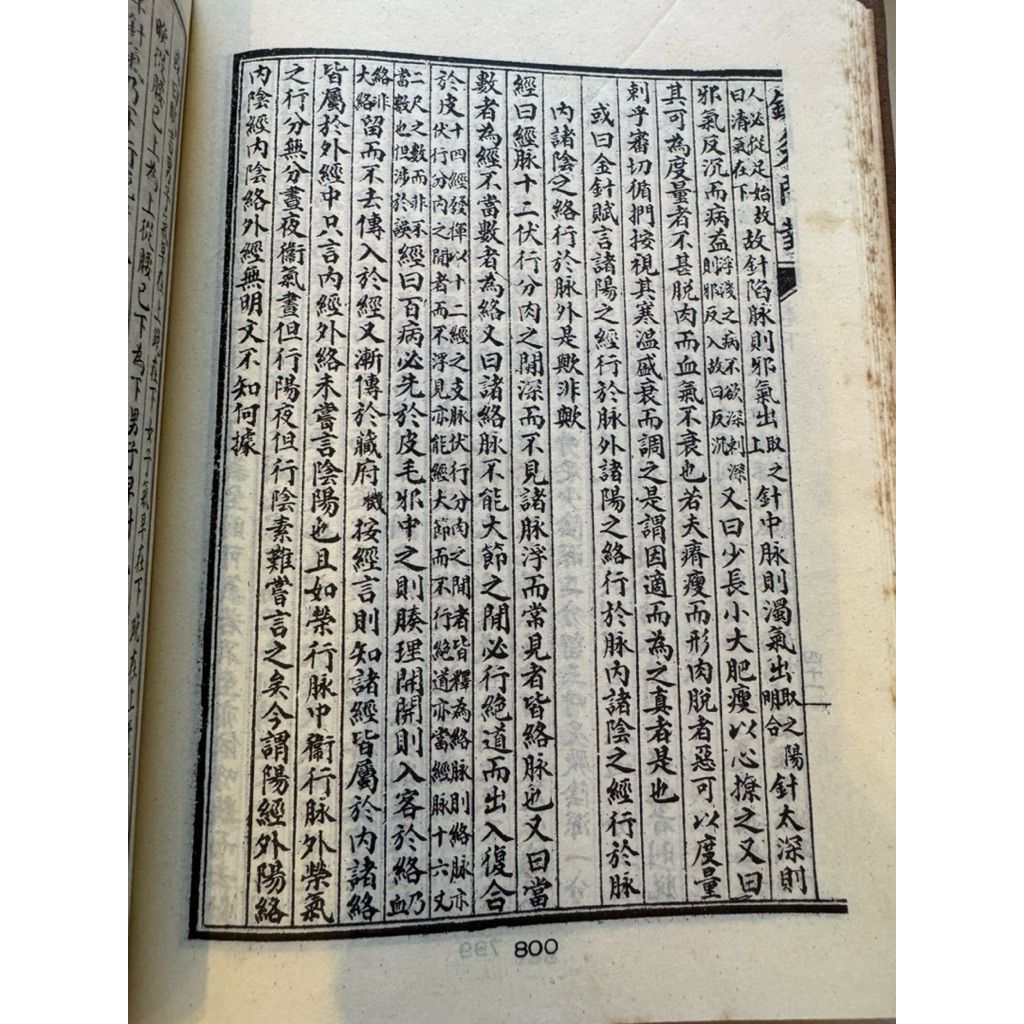 人必從足始故
曰清氣在下故針陷脉則邪氣出取之上針中脉則濁氣出取之陽明合針太深則
邪氣反沉而病益浮淺之病不欲深刺深則邪反入故曰反沉又曰少長小大肥瘦以心撩之又曰
其可為度量者不甚脱肉而血氣不衰也若夫瘠瘦而形肉脱者惡可以度量
刺乎審切循捫按視其寒温盛衰而調之是謂因適而為之真者是也
或曰金針賦言諸陽之經行於脉外諸陽之絡行於脉内諸陰之經行於脉
内諸陰之絡行於脉外是歟非歟
經曰經脉十二伏行分肉之間深而不見諸脉浮而常見者皆絡脉也又曰當
數者為經不當數者為絡又曰諸絡脉不能大節之間必行絶道而出入復合
於皮十四經發揮以十二經之支脉伏行分肉之間者皆釋為絡脉則絡脉亦
伏行分内之間者而不浮見亦能經大節而不行絶道亦當經脉十六又
二尺之數而非不
當數也但涉於誤經曰百病必先於皮毛邪中之則腠理開開則入客於絡乃血
絡非
大絡留而不去傳入於經又漸傳於藏府機按經言則知諸經皆屬於内諸絡
皆屬於外經中只言内經外絡未嘗言陰陽也且如榮行脉中衞行脉外榮氣
之行分無分晝夜衞氣晝但行陽夜但行陰素難嘗言之矣今謂陽經外陽絡
内陰經内陰絡外經無明文不知何據
800
男子氣早在上晚在下女子氣早在下晚在上
從腰已上為上從腰已下為下男子早